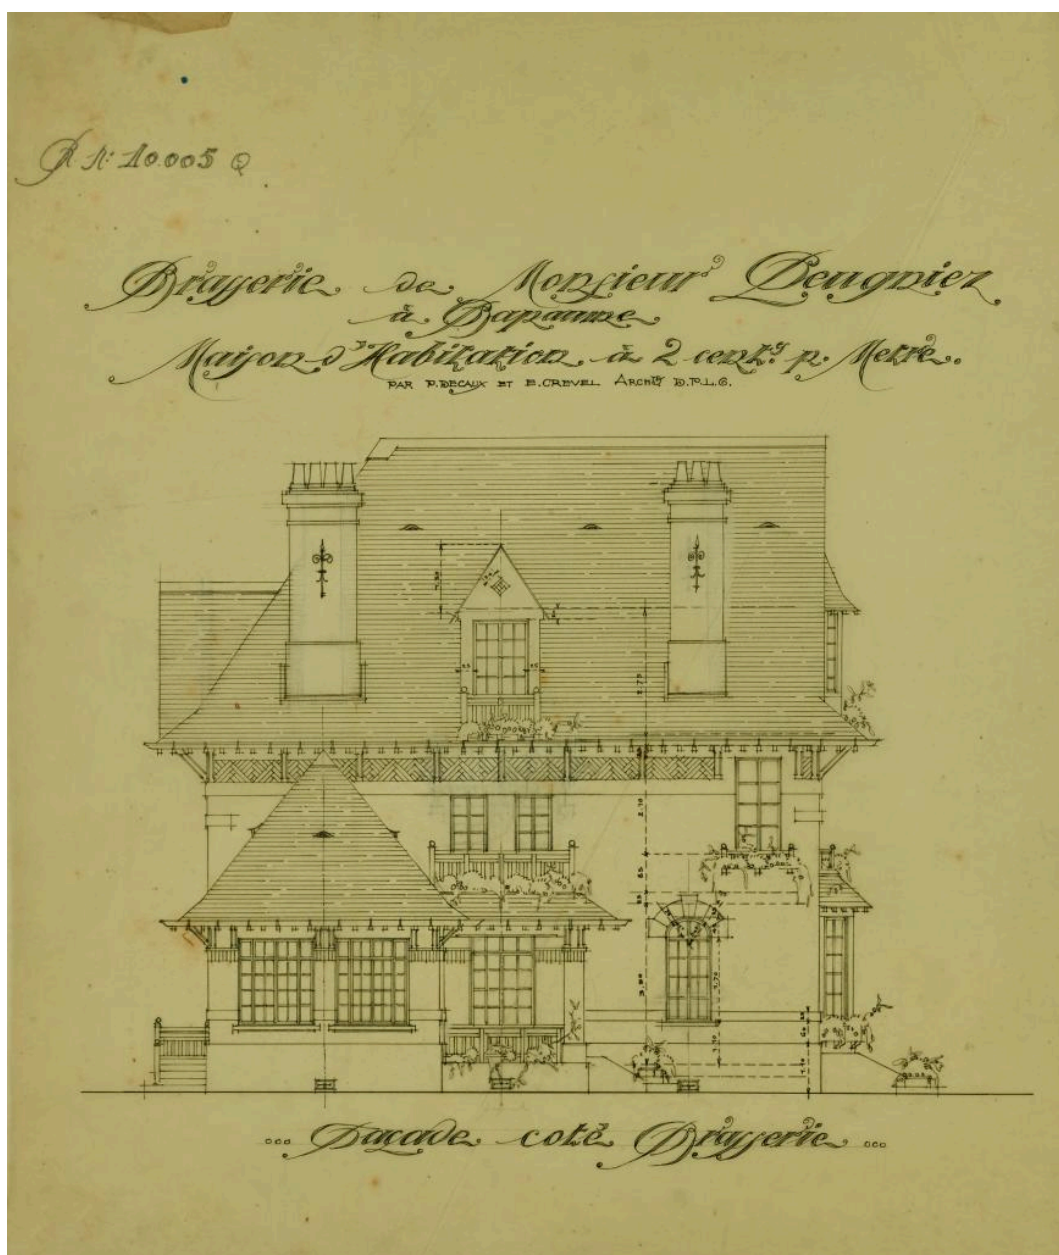 R N: 10.005 Q
Brasserie de Monsieur Peugniez
à Bapaume
Maison d'Habitation à 2 cent.s p. Metre.
PAR P. DECAUX ET E. CREVEL ARCHTS D.P.L.G.
2.75
2.70
85
3.80
... Façade coté Brasserie ...